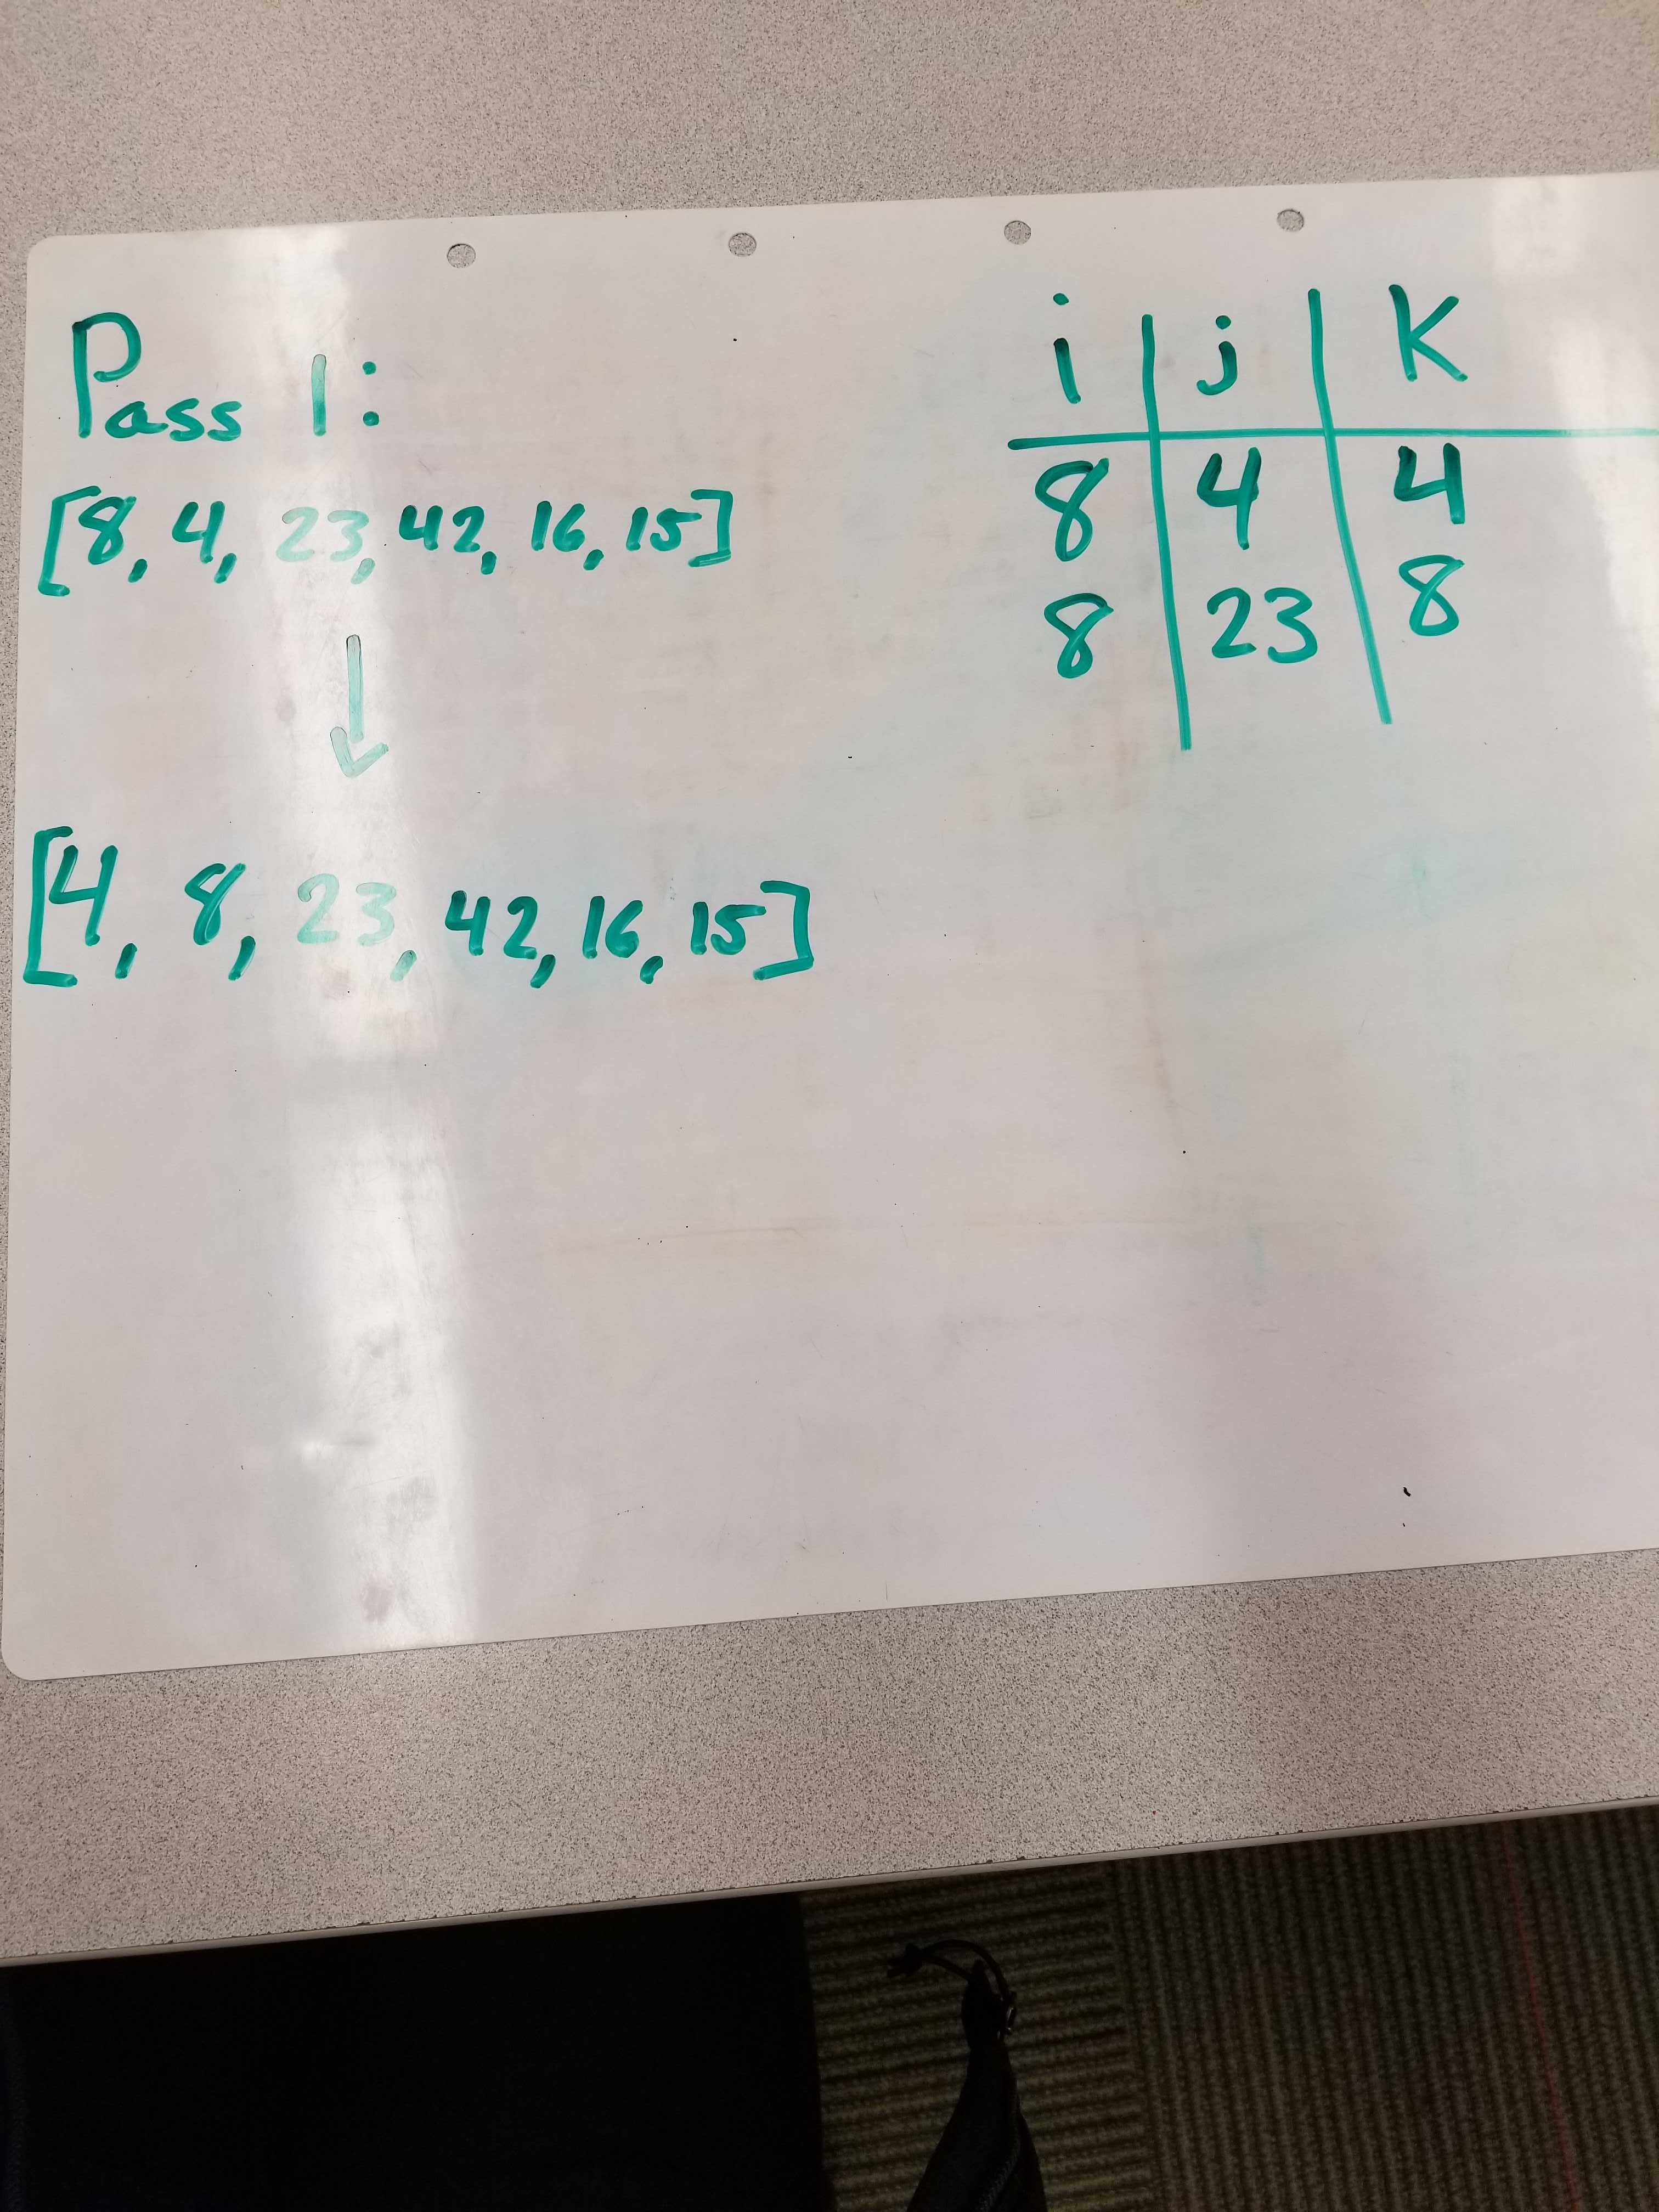 Pass 1:
[8, 4, 23, 42, 16, 15]
[4, 8, 23, 42, 16, 15]
i j K
8 4 4
8 23 8